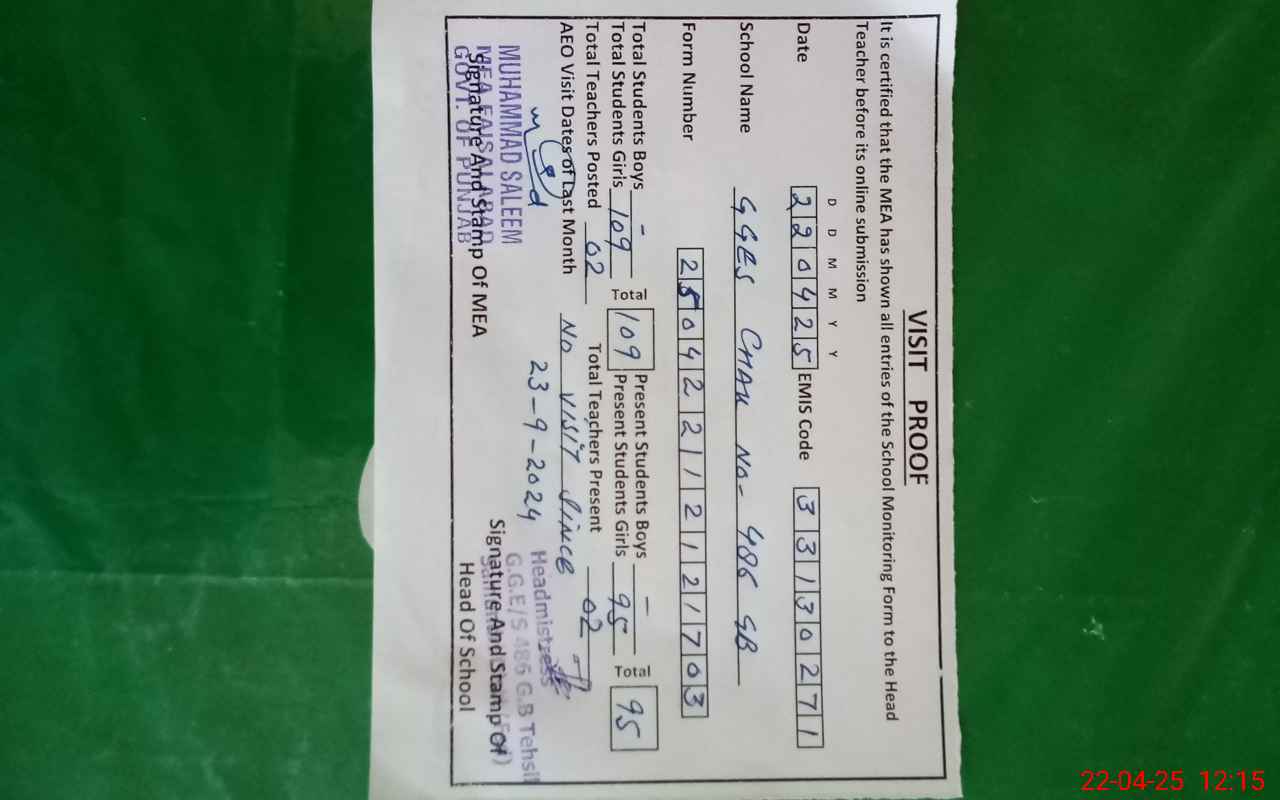 VISIT PROOF
It is certified that the MEA has shown all entries of the School Monitoring Form to the Head
Teacher before its online submission
D D M M Y Y
Date 220425 EMIS Code 33130271
School Name GGES CHAK NO- 486 GB
Form Number 250422112121703
Total Students Boys - Present Students Boys -
Total Students Girls 109 Total 109 Present Students Girls 95 Total 95
Total Teachers Posted 02 Total Teachers Present 02
AEO Visit Dates of Last Month No visit since
23-9-2024
MUHAMMAD SALEEM
MEA FAISALABAD
GOVT. OF PUNJAB
Signature And Stamp Of MEA
Headmistress
G.G.E/S 486 G.B Tehsil
Signature And Stamp Of
Head Of School
22-04-25 12:15